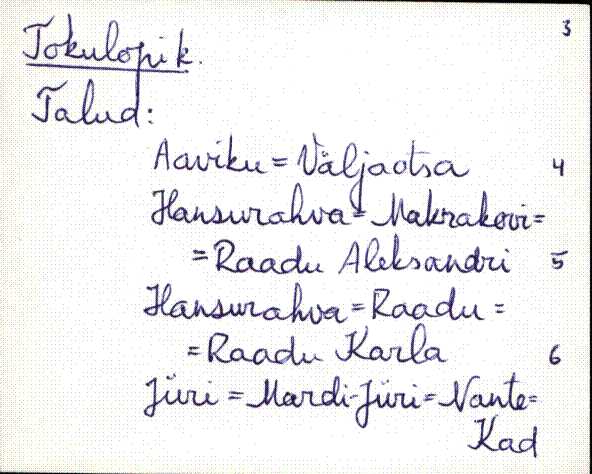 3
Tokulopik.
Talud:
Aaviku = Väljaotsa 4
Hansurahva = Makrakovi =
= Raadu Aleksandri 5
Hansurahva = Raadu =
= Raadu Karla 6
Jüri = Mardi-Jüri = Nante =
Kad